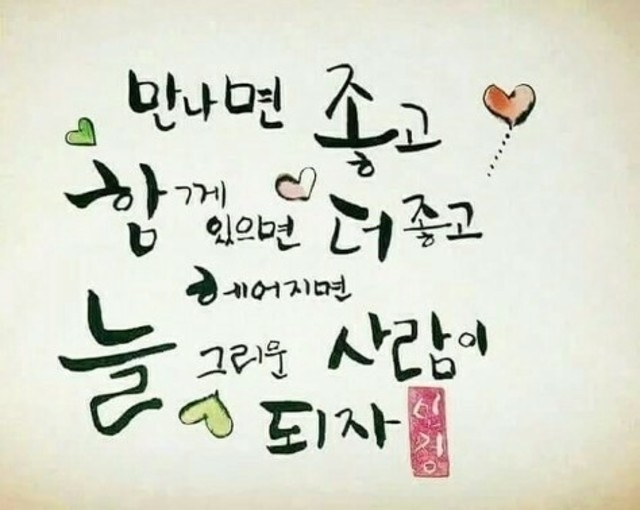 만나면 좋고
함께 있으면 더 좋고
헤어지면
늘 그리운 사람이
되자
인경